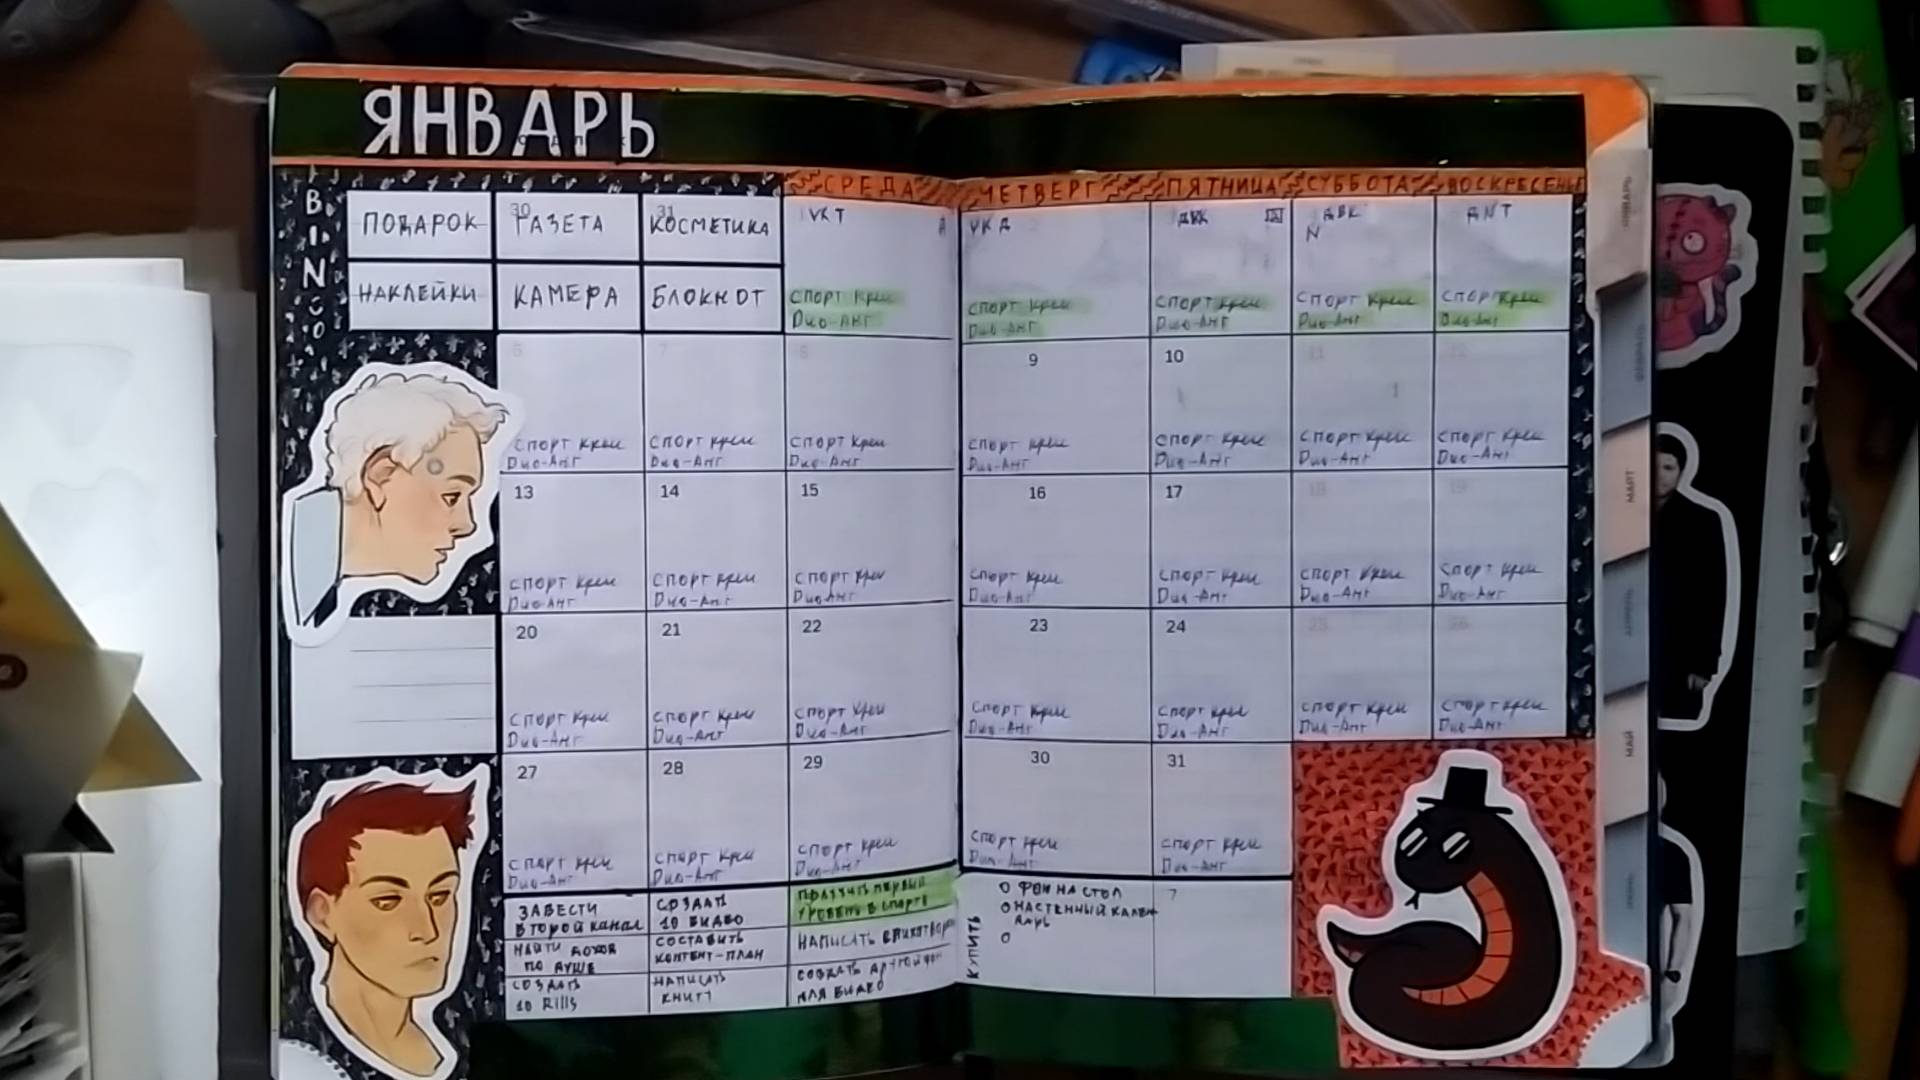 ЯНВАРЬ
BINGO
СРЕДА ЧЕТВЕРГ ПЯТНИЦА СУББОТА ВОСКРЕСЕНЬЕ
ПОДАРОК 30 ГАЗЕТА 31 КОСМЕТИКА
VKT
VKД
ДVK
ДVK
N
ДNT
НАКЛЕЙКИ КАМЕРА БЛОКНОТ
СПОРТ Крем СПОРТ Крем СПОРТ Крем СПОРТ Крем СПОРТ Крем
Duo-Анг Duo-Анг Duo-Анг Duo-Анг Duo-Анг
6 7 8 9 10 11 12
СПОРТ Крем СПОРТ Крем СПОРТ Крем СПОРТ Крем СПОРТ Крем СПОРТ Крем СПОРТ Крем
Duo-Анг Duo-Анг Duo-Анг Duo-Анг Duo-Анг Duo-Анг Duo-Анг
13 14 15 16 17 18 19
СПОРТ Крем СПОРТ Крем СПОРТ Крем СПОРТ Крем СПОРТ Крем СПОРТ Крем СПОРТ Крем
Duo-Анг Duo-Анг Duo-Анг Duo-Анг Duo-Анг Duo-Анг Duo-Анг
20 21 22 23 24 25 26
СПОРТ Крем СПОРТ Крем СПОРТ Крем СПОРТ Крем СПОРТ Крем СПОРТ Крем СПОРТ Крем
Duo-Анг Duo-Анг Duo-Анг Duo-Анг Duo-Анг Duo-Анг Duo-Анг
27 28 29 30 31
СПОРТ Крем СПОРТ Крем СПОРТ Крем СПОРТ Крем СПОРТ Крем
Duo-Анг Duo-Анг Duo-Анг Duo-Анг Duo-Анг
ЗАВЕСТИ
ВТОРОЙ КАНАЛ
СОЗДАТЬ
10 ВИДЕО
ПОЛУЧИТЬ ПЕРВЫЙ
УРОВЕНЬ В СПОРТЕ
НАЙТИ ДОХОД
ПО ДУШЕ
СОСТАВИТЬ
КОНТЕНТ-ПЛАН
НАПИСАТЬ
СОЗДАТЬ
10 RIllS
НАПИСАТЬ
КНИГУ
СОЗДАТЬ ДРУГОЙ ФОН
ДЛЯ ВИДЕО
КУПИТЬ
О ФОН НА СТОЛ
О НАСТЕННЫЙ КАЛЕН
ДАРЬ
О
7
ЯНВАРЬ
ФЕВРАЛЬ
МАРТ
АПРЕЛЬ
МАЙ
ИЮНЬ